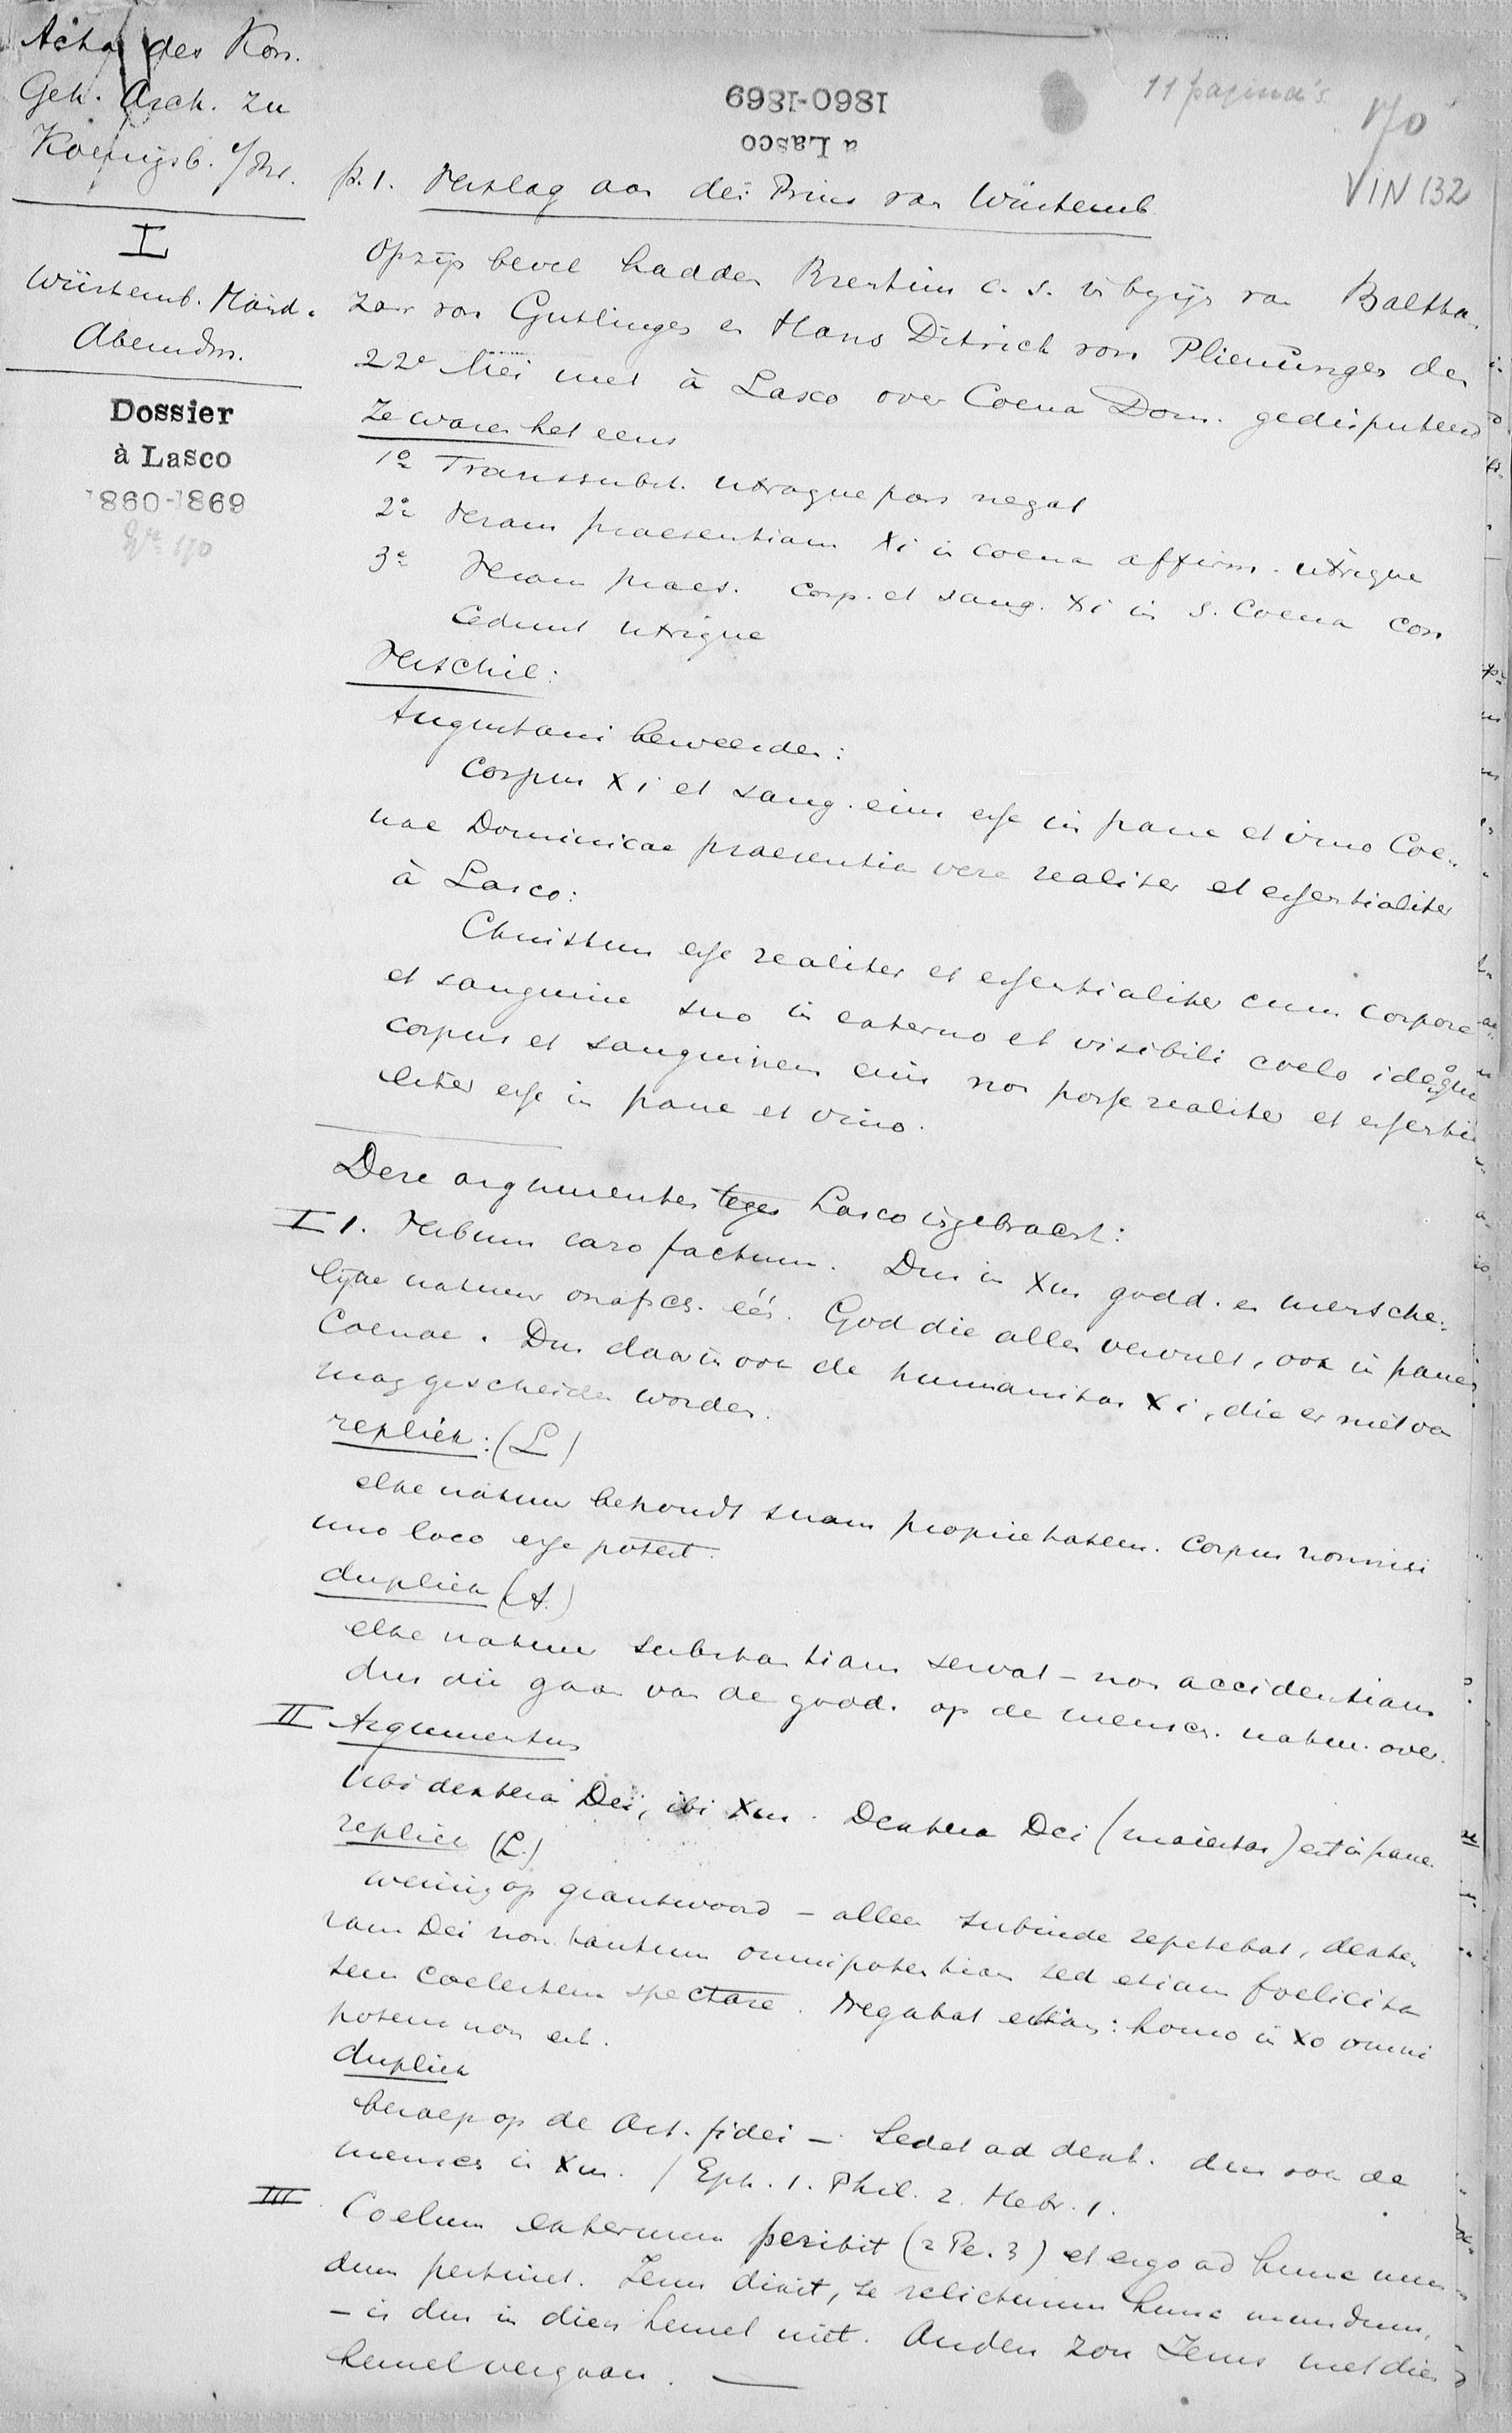 Acta des Kon.
Geh. Arch. zu
Koenigsb. i/Pr.
I
Würtemb. Händ.
Abendm.
Dossier
à Lasco
1860-1869
1860-1869
a Lasco
11 pagina's
170
VIN 132
p. 1. Verslag aan den Prins van Würtemb.
Op zijn bevel hadden Brentius c. s. in bijzijn van Baltha-
zar von Gutlingen en Hans Ditrich von Plieningen den
22e Mei met à Lasco over Coena Dom. gedisputeerd
Ze waren het eens
1e Transsubst. utraque pars negat
2e Veram praesentiam Xi in coena affirm. utrique
3e Veram praes. corp. et sang. Xi in S. Coena con
cedunt utrique
Verschil:
Augustani beweerden:
Corpus Xi et sang. eius esse in pane et vino Coe-
nae Dominicae praesentia vere realiter et essentialiter
à Lasco:
Christum esse realiter et essentialiter cum corpore
et sanguine suo in externo et visibili coelo ideoque
corpus et sanguinem eius non posse realiter et essentia
liter esse in pane et vino.
Deze argumenten tegen Lasco ingebracht:
I 1. Verbum caro factum. Dus in Xus godd. en mensche-
lijke natuur onafsch. één. God die alles vervult, ook in pane
Coenae. Dus daarin ook de humanitas Xi, die er niet van
mag gescheiden worden.
repliek: (L)
elke natuur behoudt suam proprietatem. Corpus nonnisi
uno loco esse potest.
dupliek (A.)
elke natuur substantiam servat - non accidentiam
dus die gaan van de godd. op de mensch. natuur over.
II Argumentum
Ubi dextera Dei, ibi Xus. Dextera Dei (maiestas) est in pane.
repliek (L.)
weinig op geantwoord - alleen subinde repetebat, dexte-
ram Dei non tantum omnipotentiam sed etiam foelicita
tem coelestem spectare. Negabat etiam: homo in Xo omni
potens non est.
dupliek
beroep op de Art. fidei - Sedet ad dext. dus ook de
mensch in Xus. / Eph. 1. Phil. 2. Hebr. 1.
III. Coelum externum peribit (2 Pe. 3) et ergo ad hunc mun-
dum pertinet. Jezus dixit, se relicturum hunc mundum,
- is dus in dien hemel niet. Anders zou Jezus met dien
hemel vergaan. —